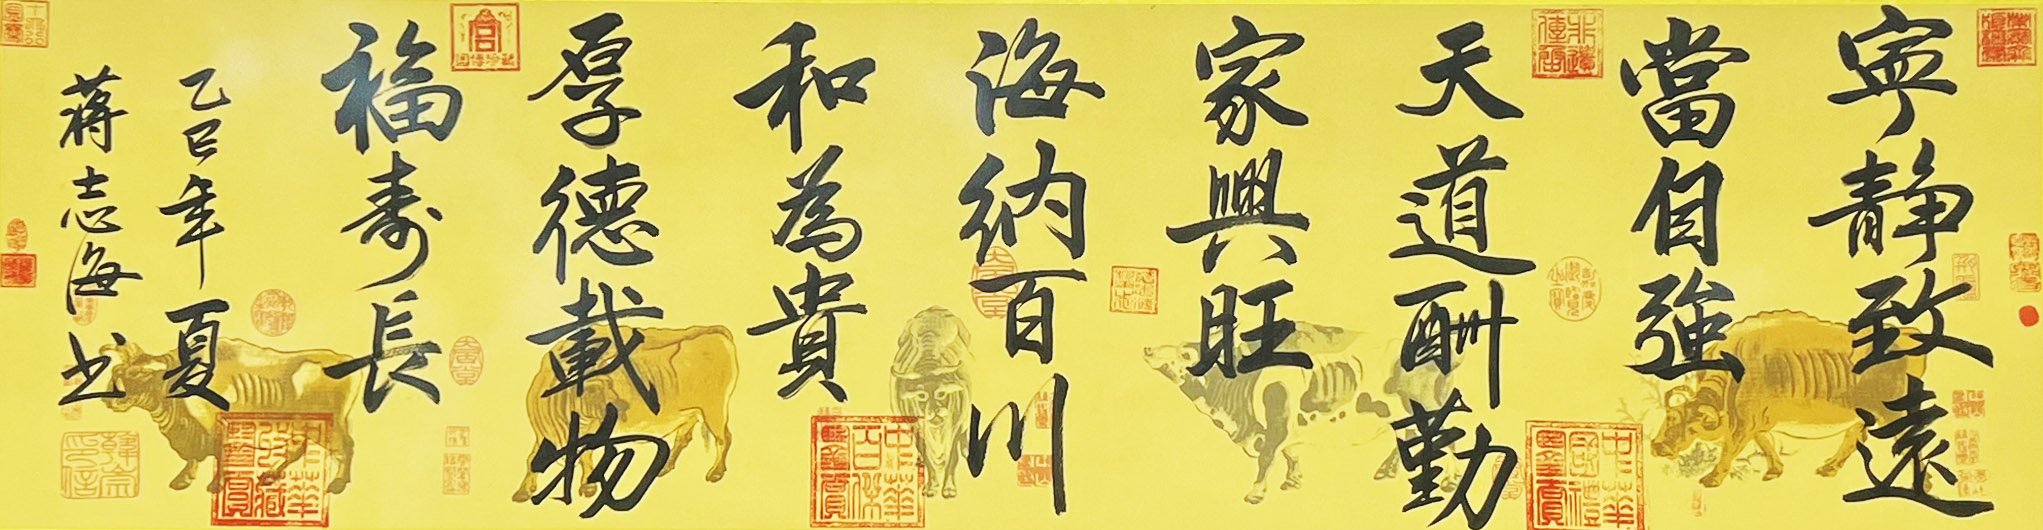 寧靜致遠
當自強
天道酬勤
家興旺
海納百川
和為貴
厚德載物
福寿長
乙巳年夏
蒋志海书